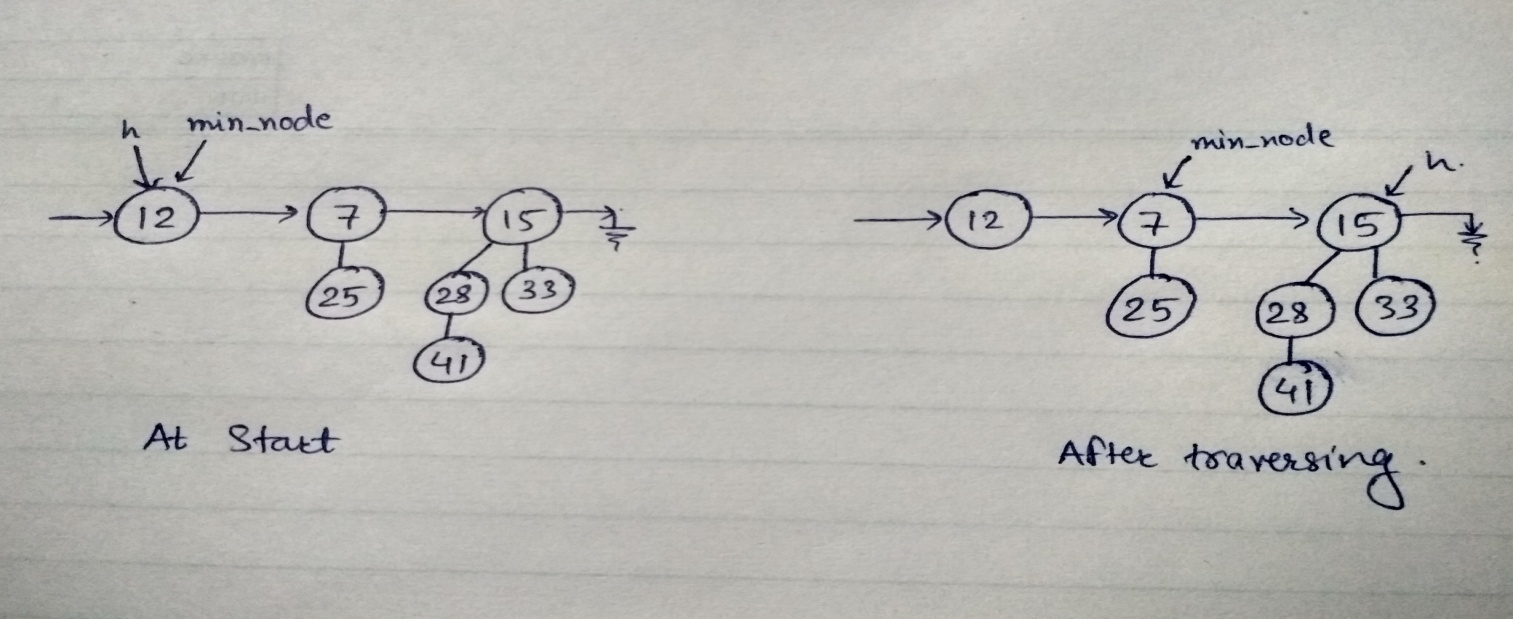 h min_node
12 7 15
25 28 33
41
At Start
min_node
h.
12 7 15
25 28 33
41
After traversing.